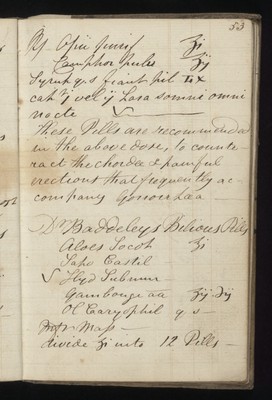 53
℞ Opii purif ʒi
Camphor pulv ʒij
Syrup q.s. fiant pil no x
cap j vel ij hora somni omni
nocte
These Pills are recommended
in the above doses, to counte-
ract the chordee & painful
erections that frequently ac-
company Gonorrhœa
Dr Baddeley's Bilious Pills
Aloes Socot ʒi
Sapo Castil
Hyd Submur
Gamboge aa ʒij ℈ij
Ol Caryophil q s
Mass
divide ʒi into 12 Pills